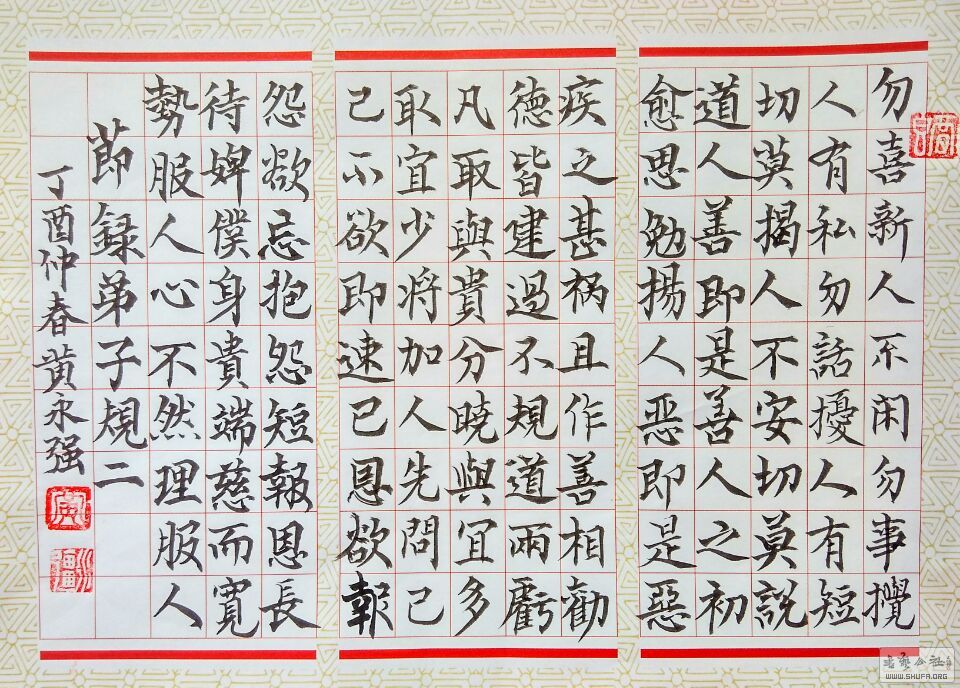 勿喜新人不闲勿事攪
人有私勿話擾人有短
切莫揭人不安切莫説
道人善即是善人之初
愈思勉揚人惡即是惡
疾之甚祸且作善相勸
德皆建過不規道兩虧
凡取與貴分曉與宜多
取宜少將加人先問己
己不欲即速已恩欲報
怨欲忘抱怨短報恩長
待婢僕身貴端慈而寬
勢服人心不然理服人
節録弟子規二
丁酉仲春黄永强
WWW.SHUFA.ORG